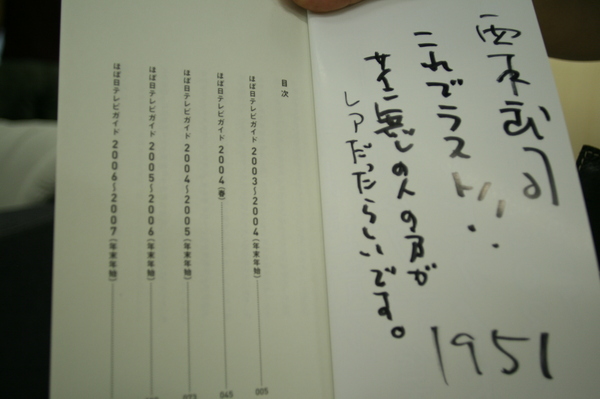 西本武司
これでラスト!!
サイン無しの人の方が
レアだったらしいです。
1951
目次
ほぼ日テレビガイド 2003〜2004[年末年始] 005
ほぼ日テレビガイド 2004[春] 045
ほぼ日テレビガイド 2004〜2005[年末年始]
ほぼ日テレビガイド 2005〜2006[年末年始]
ほぼ日テレビガイド 2006〜2007[年末年始]